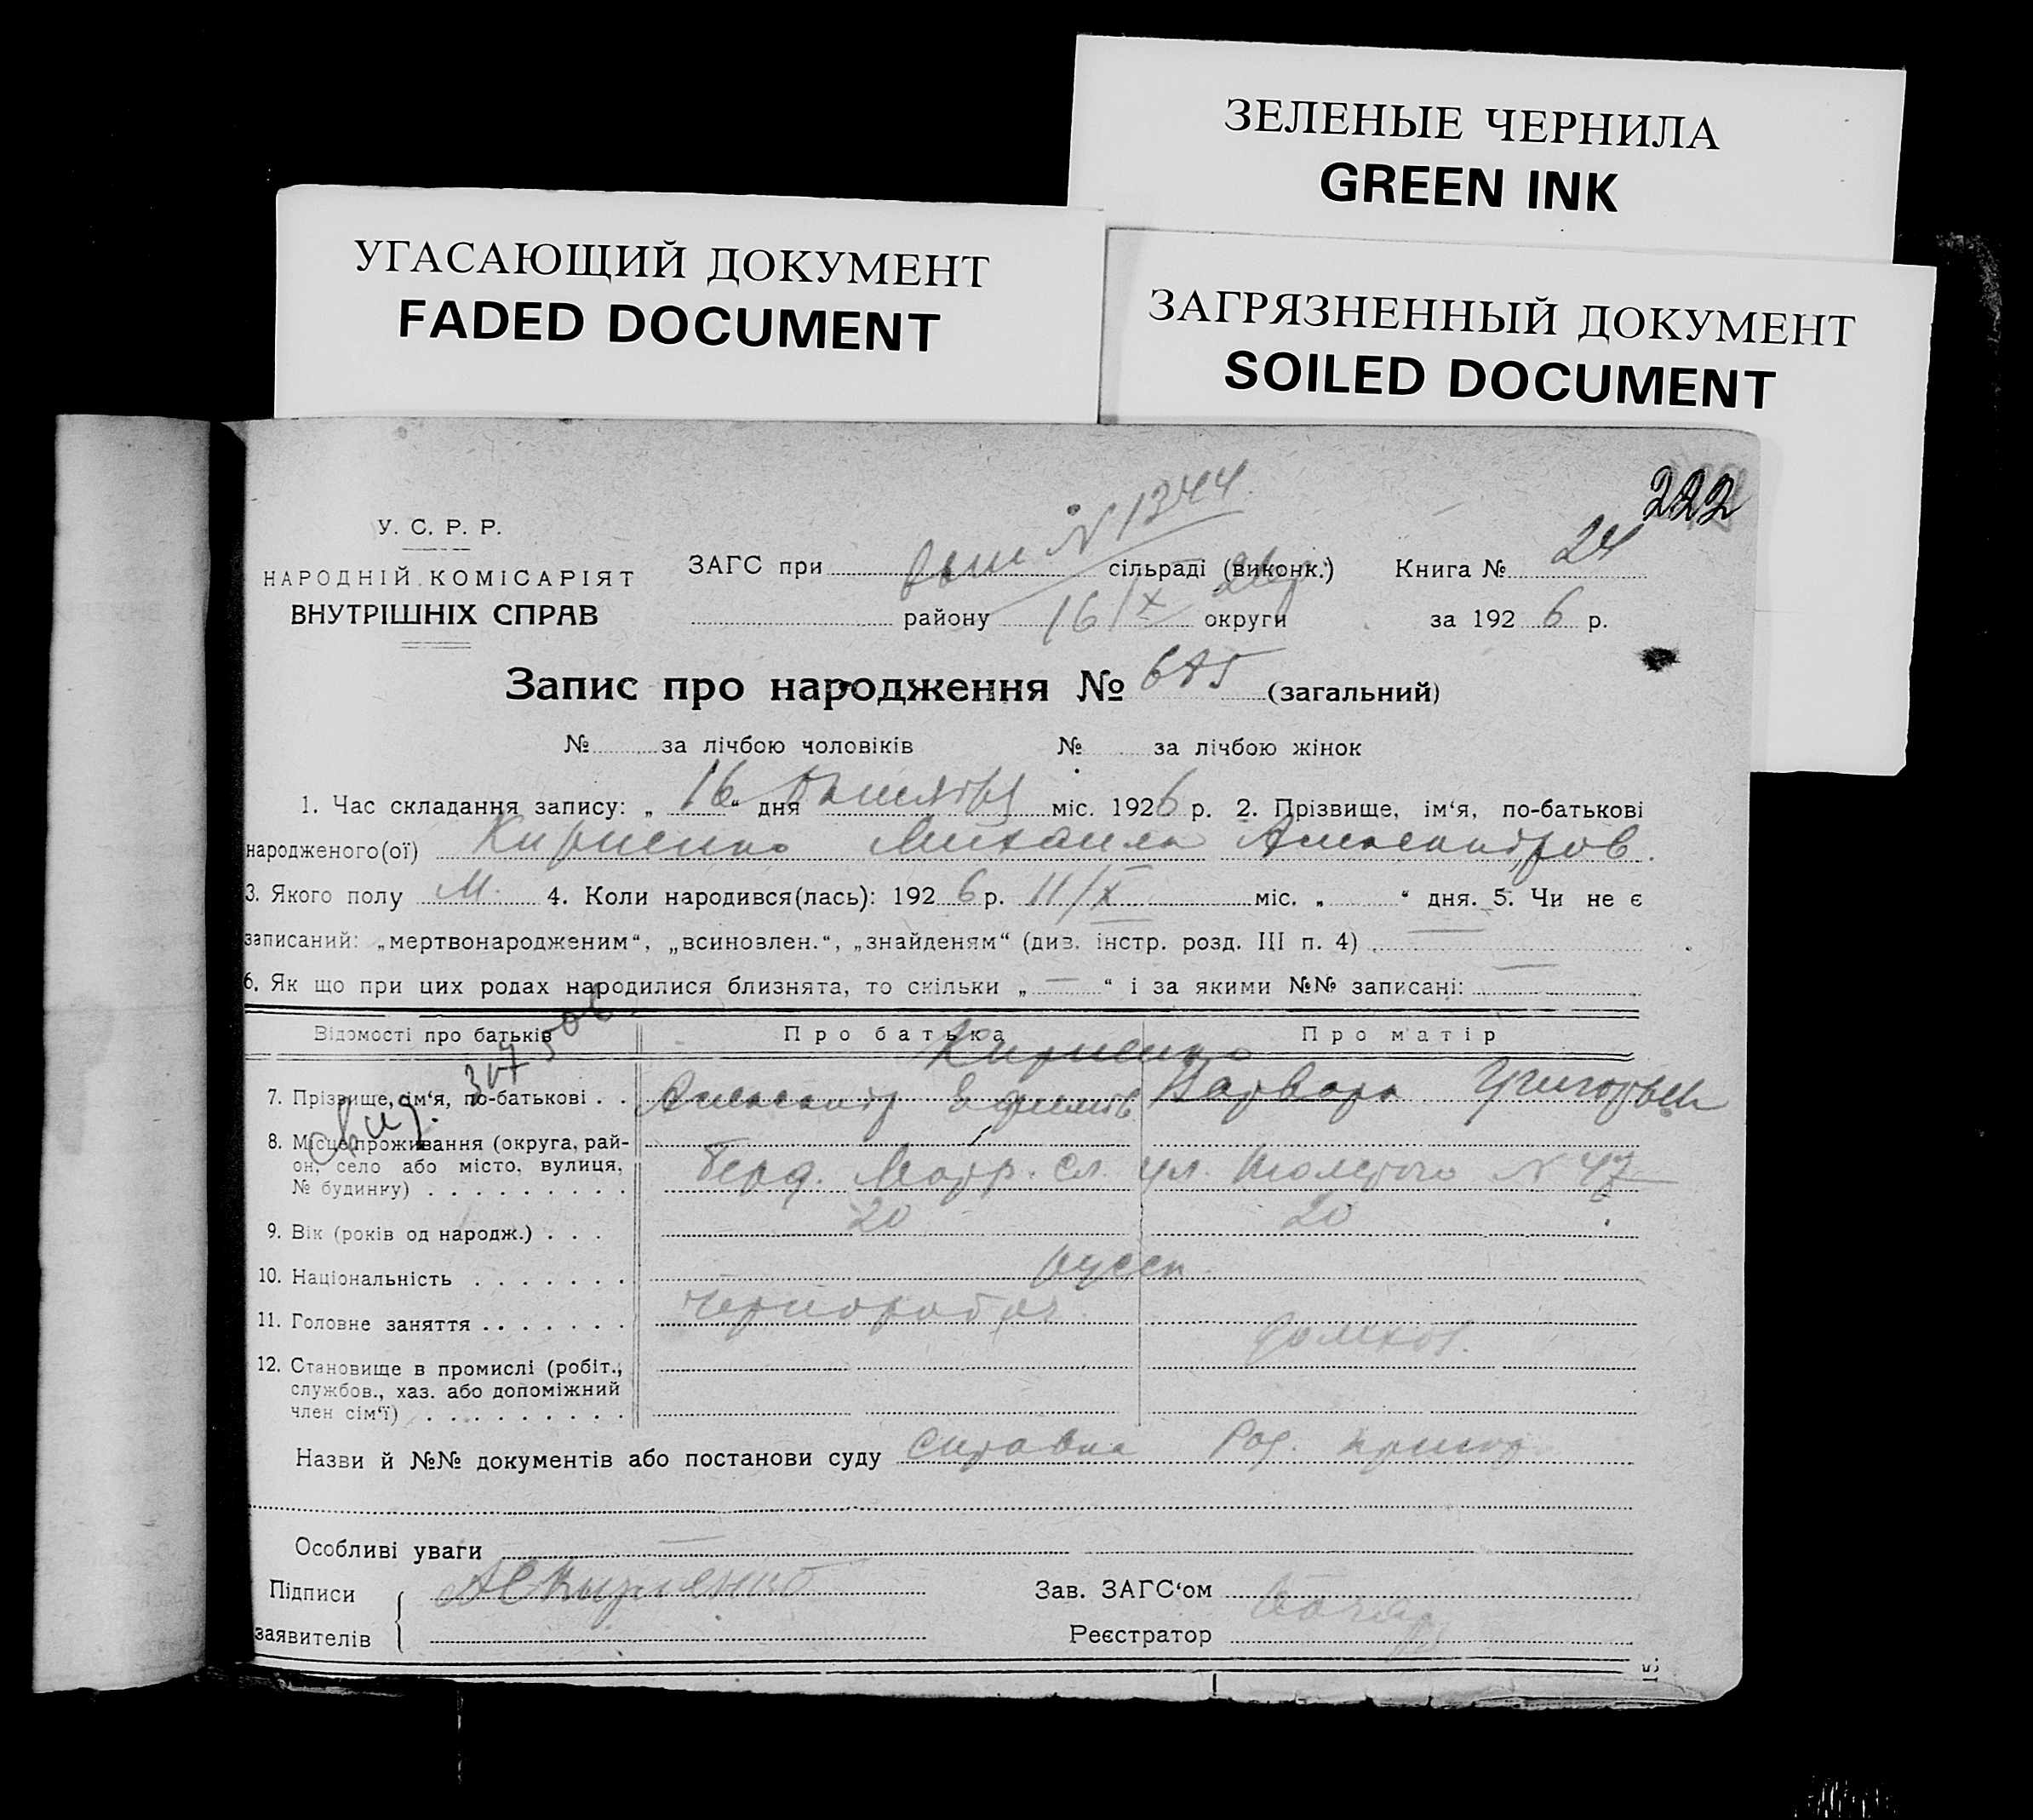 ЗЕЛЕНЫЕ ЧЕРНИЛА
GREEN INK
УГАСАЮЩИЙ ДОКУМЕНТ
FADED DOCUMENT
ЗАГРЯЗНЕННЫЙ ДОКУМЕНТ
SOILED DOCUMENT
222
У. С. Р. Р.
НАРОДНІЙ КОМІСАРІЯТ
ВНУТРІШНІХ СПРАВ
N 1344
ЗАГС при сільраді (виконк.) Книга № 24
району 16/X округи за 1926 р.
Запис про народження № 675 (загальний)
№ за лічбою чоловіків № за лічбою жінок
1. Час складання запису: „ 16 “ дня міс. 1926 р. 2. Прізвище, ім‘я, по-батькові
народженого(ої) Кириенко Михаил Александров.
3. Якого полу М. 4. Коли народився(лась): 1926 р. 11/X міс. „ “ дня. 5. Чи не є
записаний: „мертвонародженим“, „всиновлен.“, „знайденям“ (див. інстр. розд. III п. 4) —
6. Як що при цих родах народилися близнята, то скільки „ — “ і за якими №№ записані: —
Відомості про батьків Про батька Про матір
Кириенко
7. Прізвище, ім‘я, по-батькові . . Александр Ефимов Варвара Григорьев
8. Місце проживання (округа, рай-
он, село або місто, вулиця,
№ будинку) . . . . . . . . . ул. N 47
9. Вік (років од народж.) . . . 20 20
10. Національність . . . . . . . русск
11. Головне заняття . . . . . . . Чернорабоч. домхоз.
12. Становище в промислі (робіт.,
службов., хаз. або допоміжний
член сім‘ї) . . . . . . . . .
Назви й №№ документів або постанови суду справка Род.
Особливі уваги —
Підписи Кириенко Зав. ЗАГС‘ом
заявителів Реєстратор